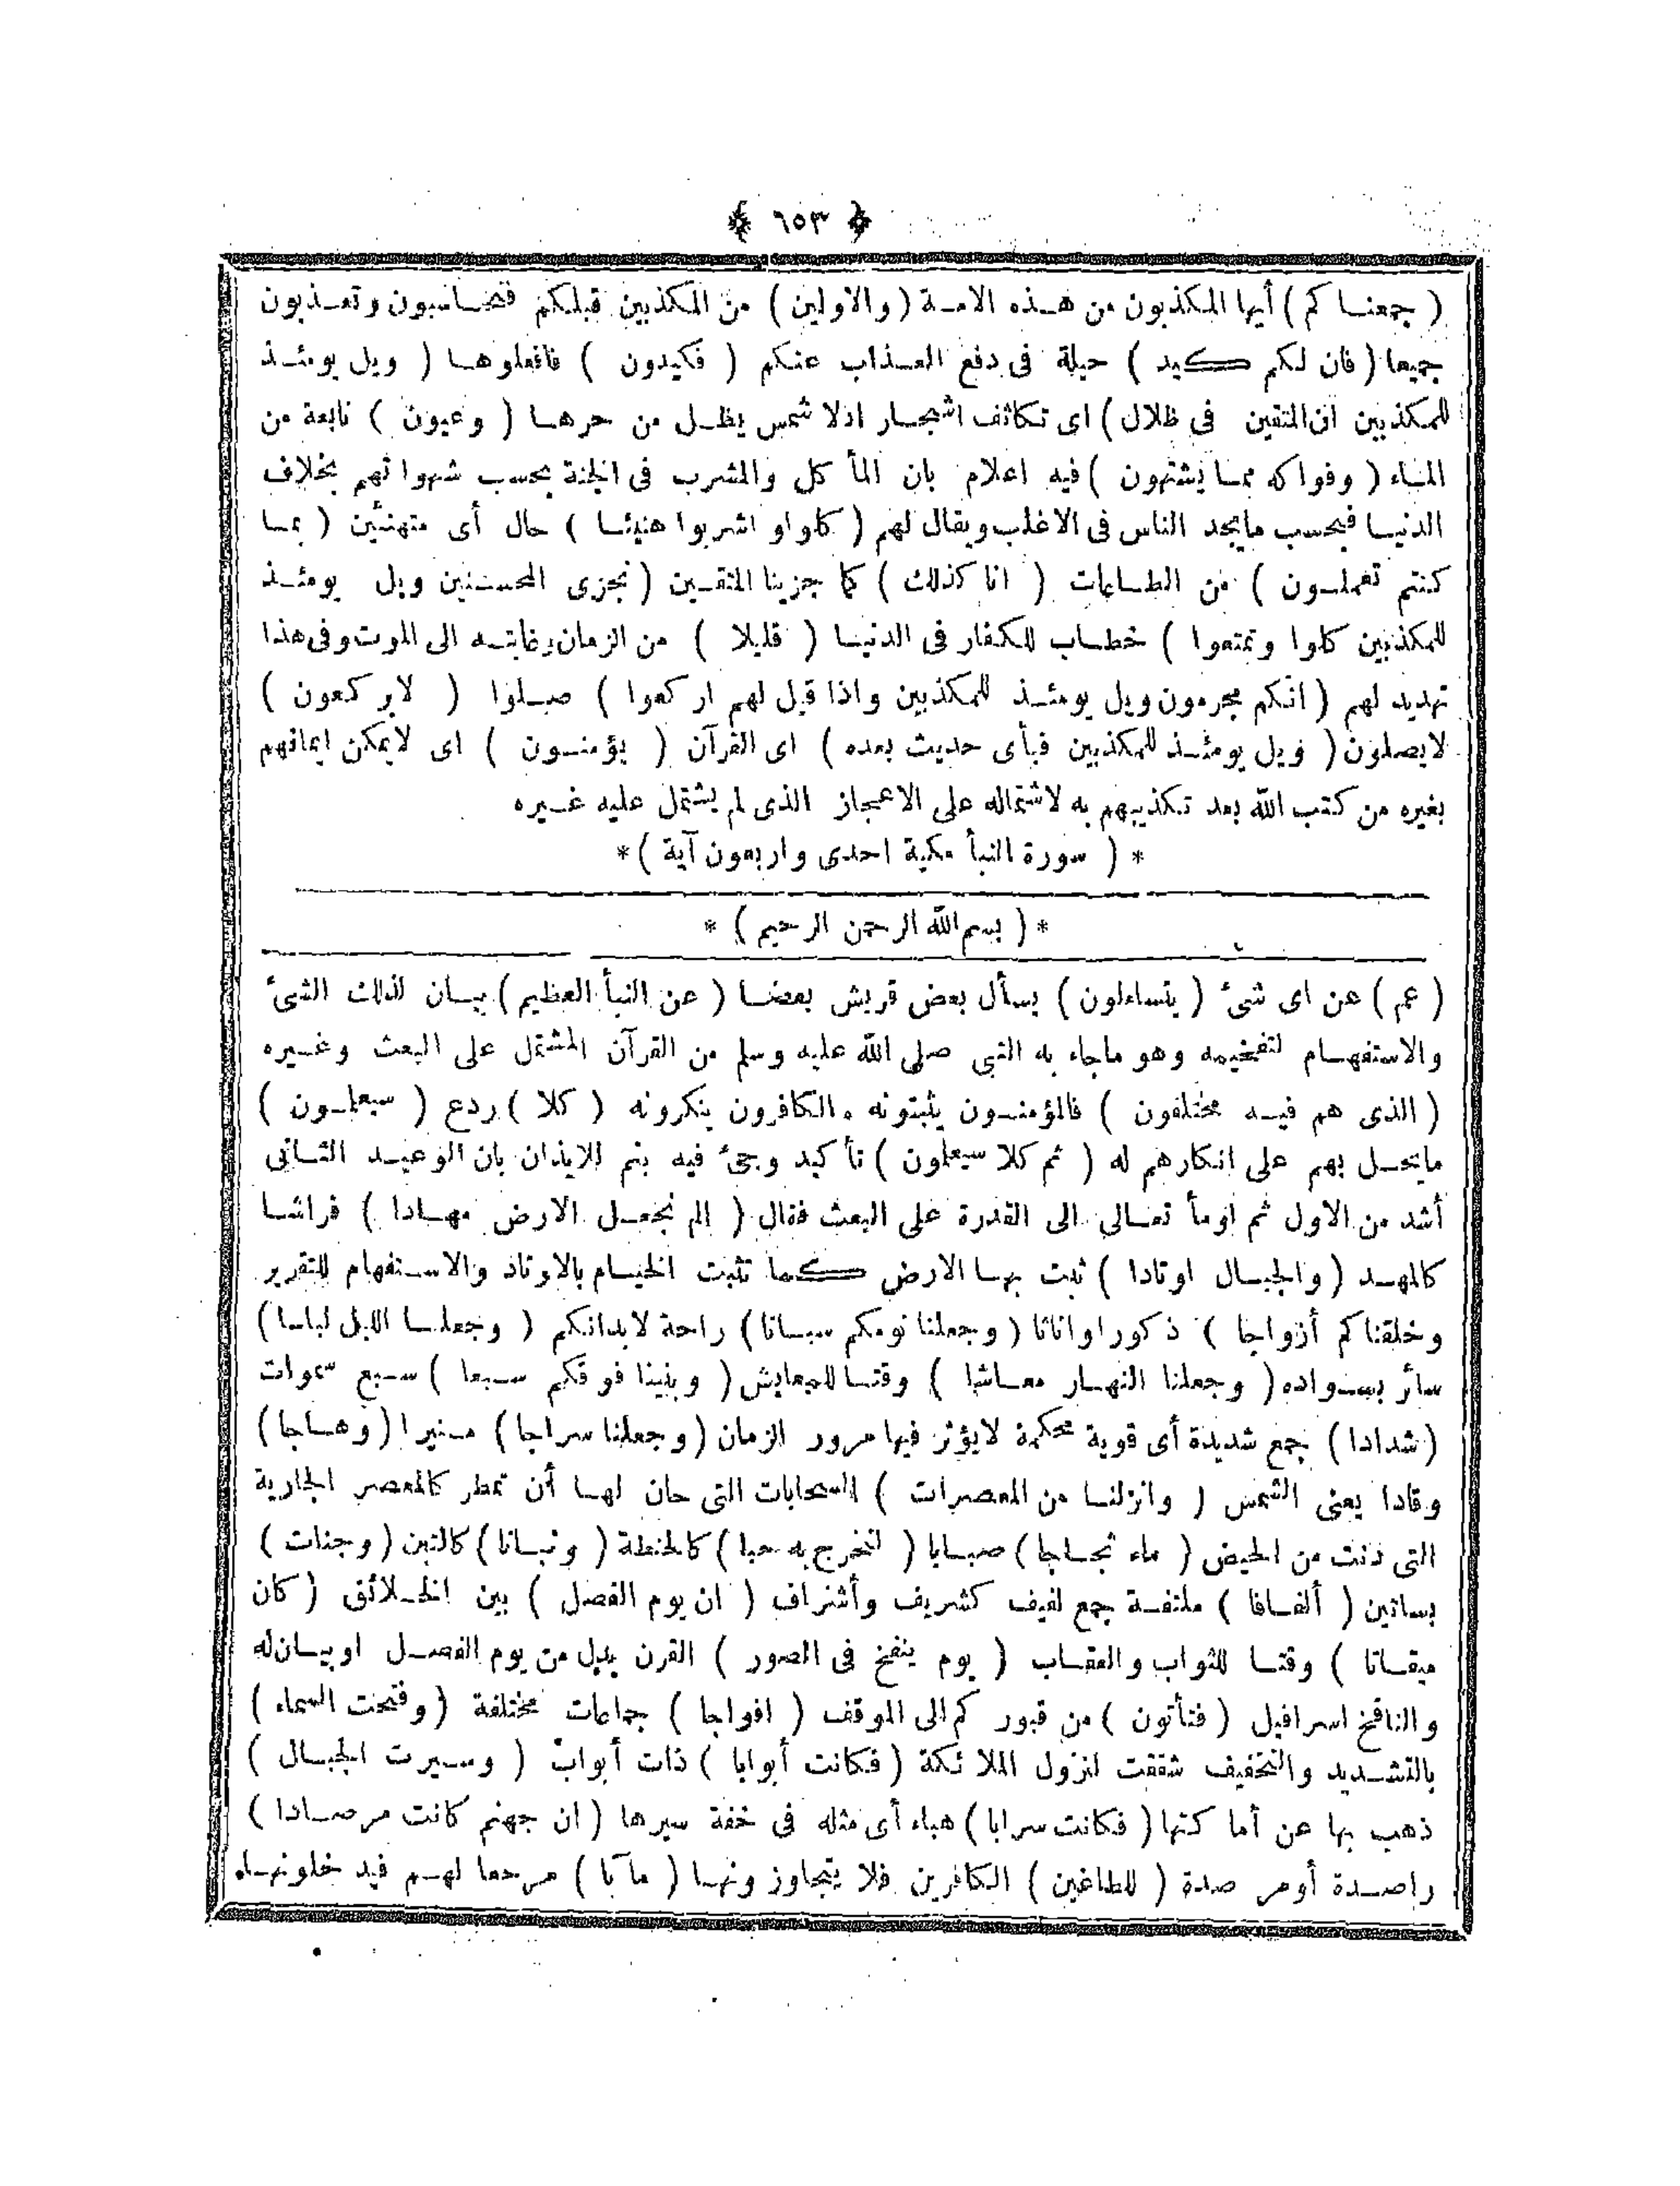 ﴿ ٦٥٣ ﴾
( جمعناكم ) أيها المكذبون من هذه الامة ( والاولين ) من المكذبين قبلكم فتحاسبون وتعذبون
جميعا ( فان لكم كيد ) حيلة فى دفع العذاب عنكم ( فكيدون ) فافعلوها ( ويل يومئذ
للمكذبين ان المتقين فى ظلال ) اى تكاثف اشجار اذلا شمس يظل من حرها ( وعيون ) نابعة من
الماء ( وفواكه مما يشتهون ) فيه اعلام بان المأكل والمشرب فى الجنة بحسب شهواتهم بخلاف
الدنيا فبحسب مايجد الناس فى الاغلب ويقال لهم ( كلوا واشربوا هنيئا ) حال أى متهنئين ( بما
كنتم تعملون ) من الطاعات ( انا كذلك ) كما جزينا المتقين ( نجزى المحسنين ويل يومئذ
للمكذبين كلوا وتمتعوا ) خطاب للكفار فى الدنيا ( قليلا ) من الزمان وغايته الى الموت وفى هذا
تهديد لهم ( انكم مجرمون ويل يومئذ للمكذبين واذا قيل لهم اركعوا ) صلوا ( لايركعون )
لايصلون ( ويل يومئذ للمكذبين فبأى حديث بعده ) اى القرآن ( يؤمنون ) اى لايمكن ايمانهم
بغيره من كتب الله بعد تكذيبهم به لاشتماله على الاعجاز الذى لم يشتمل عليه غيره
* ( سورة النبأ مكية احدى واربعون آية ) *
* ( بسم الله الرحمن الرحيم ) *
( عم ) عن اى شىء ( يتساءلون ) يسأل بعض قريش بعضا ( عن النبأ العظيم ) بيان لذلك الشىء
والاستفهام لتفخيمه وهو ماجاء به النبى صلى الله عليه وسلم من القرآن المشتمل على البعث وغيره
( الذى هم فيه مختلفون ) فالمؤمنون يثبتونه والكافرون ينكرونه ( كلا ) ردع ( سيعلمون )
مايحل بهم على انكارهم له ( ثم كلا سيعلمون ) تأكيد وجىء فيه بثم للايذان بان الوعيد الثانى
أشد من الاول ثم اومأ تعالى الى القدرة على البعث فقال ( الم نجعل الارض مهادا ) فراشا
كالمهد ( والجبال اوتادا ) ثبت بها الارض كما تثبت الخيام بالاوتاد والاستفهام للتقرير
( وخلقناكم أزواجا ) ذكورا واناثا ( وجعلنا نومكم سباتا ) راحة لابدانكم ( وجعلنا الليل لباسا )
ساتر بسواده ( وجعلنا النهار معاشا ) وقتا للمعايش ( وبنينا فوقكم سبعا ) سبع سموات
( شدادا ) جمع شديدة أى قوية محكمة لايؤثر فيها مرور الزمان ( وجعلنا سراجا ) منيرا ( وهاجا )
وقادا يعنى الشمس ( وانزلنا من المعصرات ) السحابات التى حان لها أن تمطر كالمعصر الجارية
التى دنت من الحيض ( ماء ثجاجا ) صبابا ( لنخرج به حبا ) كالحنطة ( ونباتا ) كالتبن ( وجنات )
بساتين ( ألفافا ) ملتفة جمع لفيف كشريف وأشراف ( ان يوم الفصل ) بين الخلائق ( كان
ميقاتا ) وقتا للثواب والعقاب ( يوم ينفخ فى الصور ) القرن بدل من يوم الفصل او بيان له
والنافخ اسرافيل ( فتأتون ) من قبوركم الى الموقف ( افواجا ) جماعات مختلفة ( وفتحت السماء )
بالتشديد والتخفيف شققت لنزول الملائكة ( فكانت أبوابا ) ذات أبواب ( وسيرت الجبال )
ذهب بها عن أماكنها ( فكانت سرابا ) هباء أى مثله فى خفة سيرها ( ان جهنم كانت مرصادا )
راصدة أومرصدة ( للطاغين ) الكافرين فلا يتجاوزونها ( مآبا ) مرجعا لهم فيدخلونها